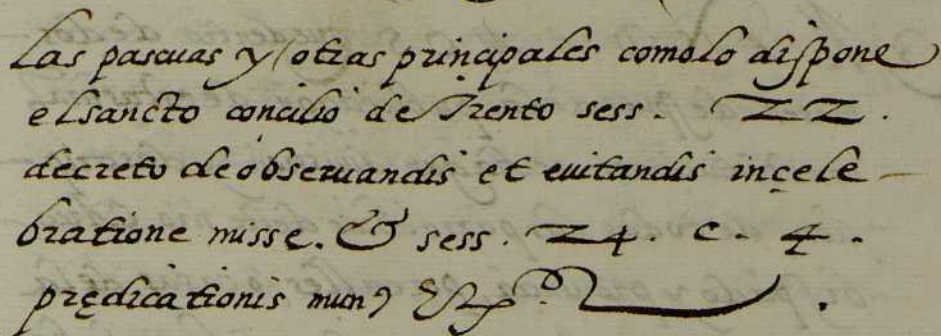 las pascuas y otras principales comolo dispone
el sancto concilio de Trento sess. 22.
decreto de observandis et evitandis in cele
bratione misse. & sess. 24. c. 4.
predicationis mun9